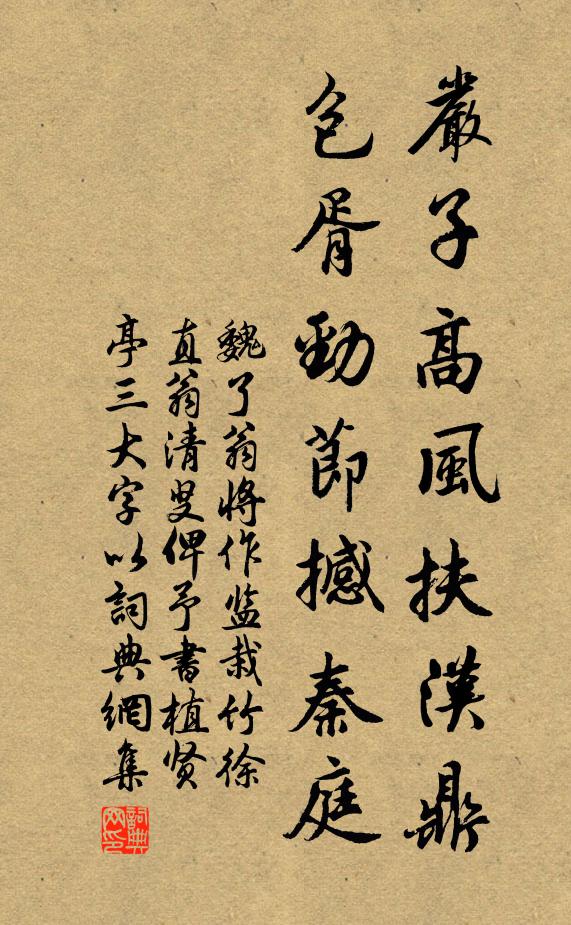 嚴子高風扶漢鼎
包胥勁節撼秦庭
魏了翁將作监栽竹徐
直翁清叟俾予書植贤
亭三大字以詞典網集
詞典网印